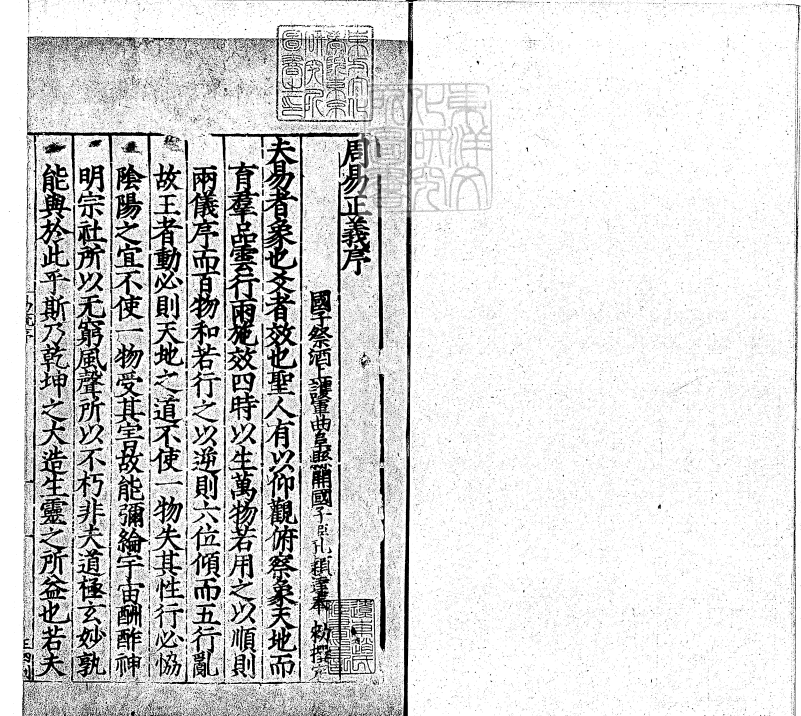 周易正義序
國子祭酒上護軍曲阜縣開國子臣孔穎達奉 勑撰
夫易者象也爻者效也聖人有以仰觀俯察象天地而
育羣品雲行雨施效四時以生萬物若用之以順則
兩儀序而百物和若行之以逆則六位傾而五行亂
故王者動必則天地之道不使一物失其性行必恊
陰陽之宜不使一物受其害故能彌綸宇宙酬酢神
明宗社所以无窮風聲所以不朽非夫道極玄妙孰
能與於此乎斯乃乾坤之大造生靈之所益也若夫